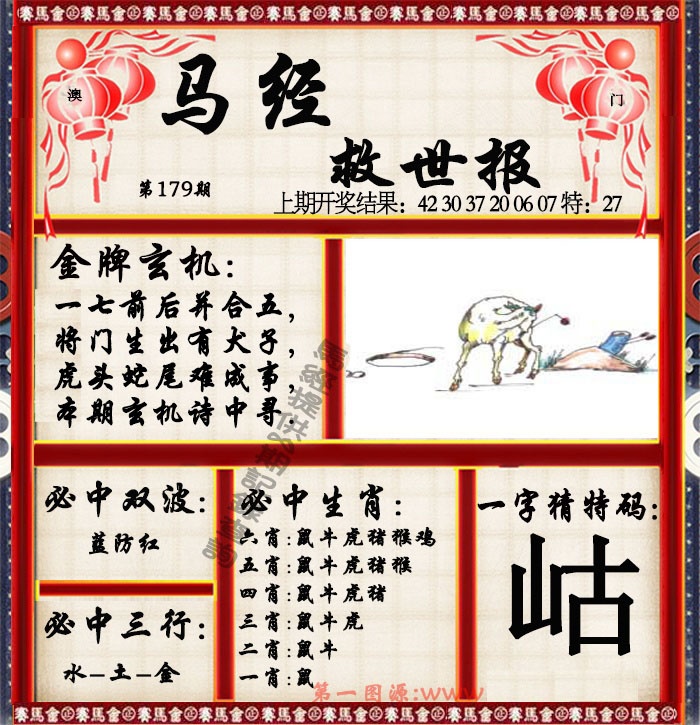 賽馬會正金賽馬會正金賽馬會正金賽馬會正金賽馬會
澳
门
马经
救世报
第179期
上期开奖结果：42 30 37 20 06 07 特：27
金牌玄机：
一七前后并合五，
将门生出有犬子，
虎头蛇尾难成事，
本期玄机诗中寻.
必中双波：
蓝防红
必中三行：
水-土-金
必中生肖：
六肖:鼠牛虎猪猴鸡
五肖:鼠牛虎猪猴
四肖:鼠牛虎猪
三肖:鼠牛虎
二肖:鼠牛
一肖:鼠
一字猜特码：
岵
第一图源:www